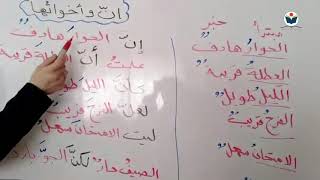 انّ وأخواتها
مبتدأ خبر
الحوارُ هادفٌ
العطلةُ قريبةٌ
الليلُ طويلٌ
الفرجُ قريبٌ
الامتحانُ سهلٌ
إنّ الحوارَ هادفٌ
علمتُ أنّ قريبةٌ
كأنّ الليلَ طويلٌ
لعلّ الفرجَ قريبٌ
ليت الامتحانَ سهلٌ
الصيفُ حارٌّ لكنّ الجوَّ